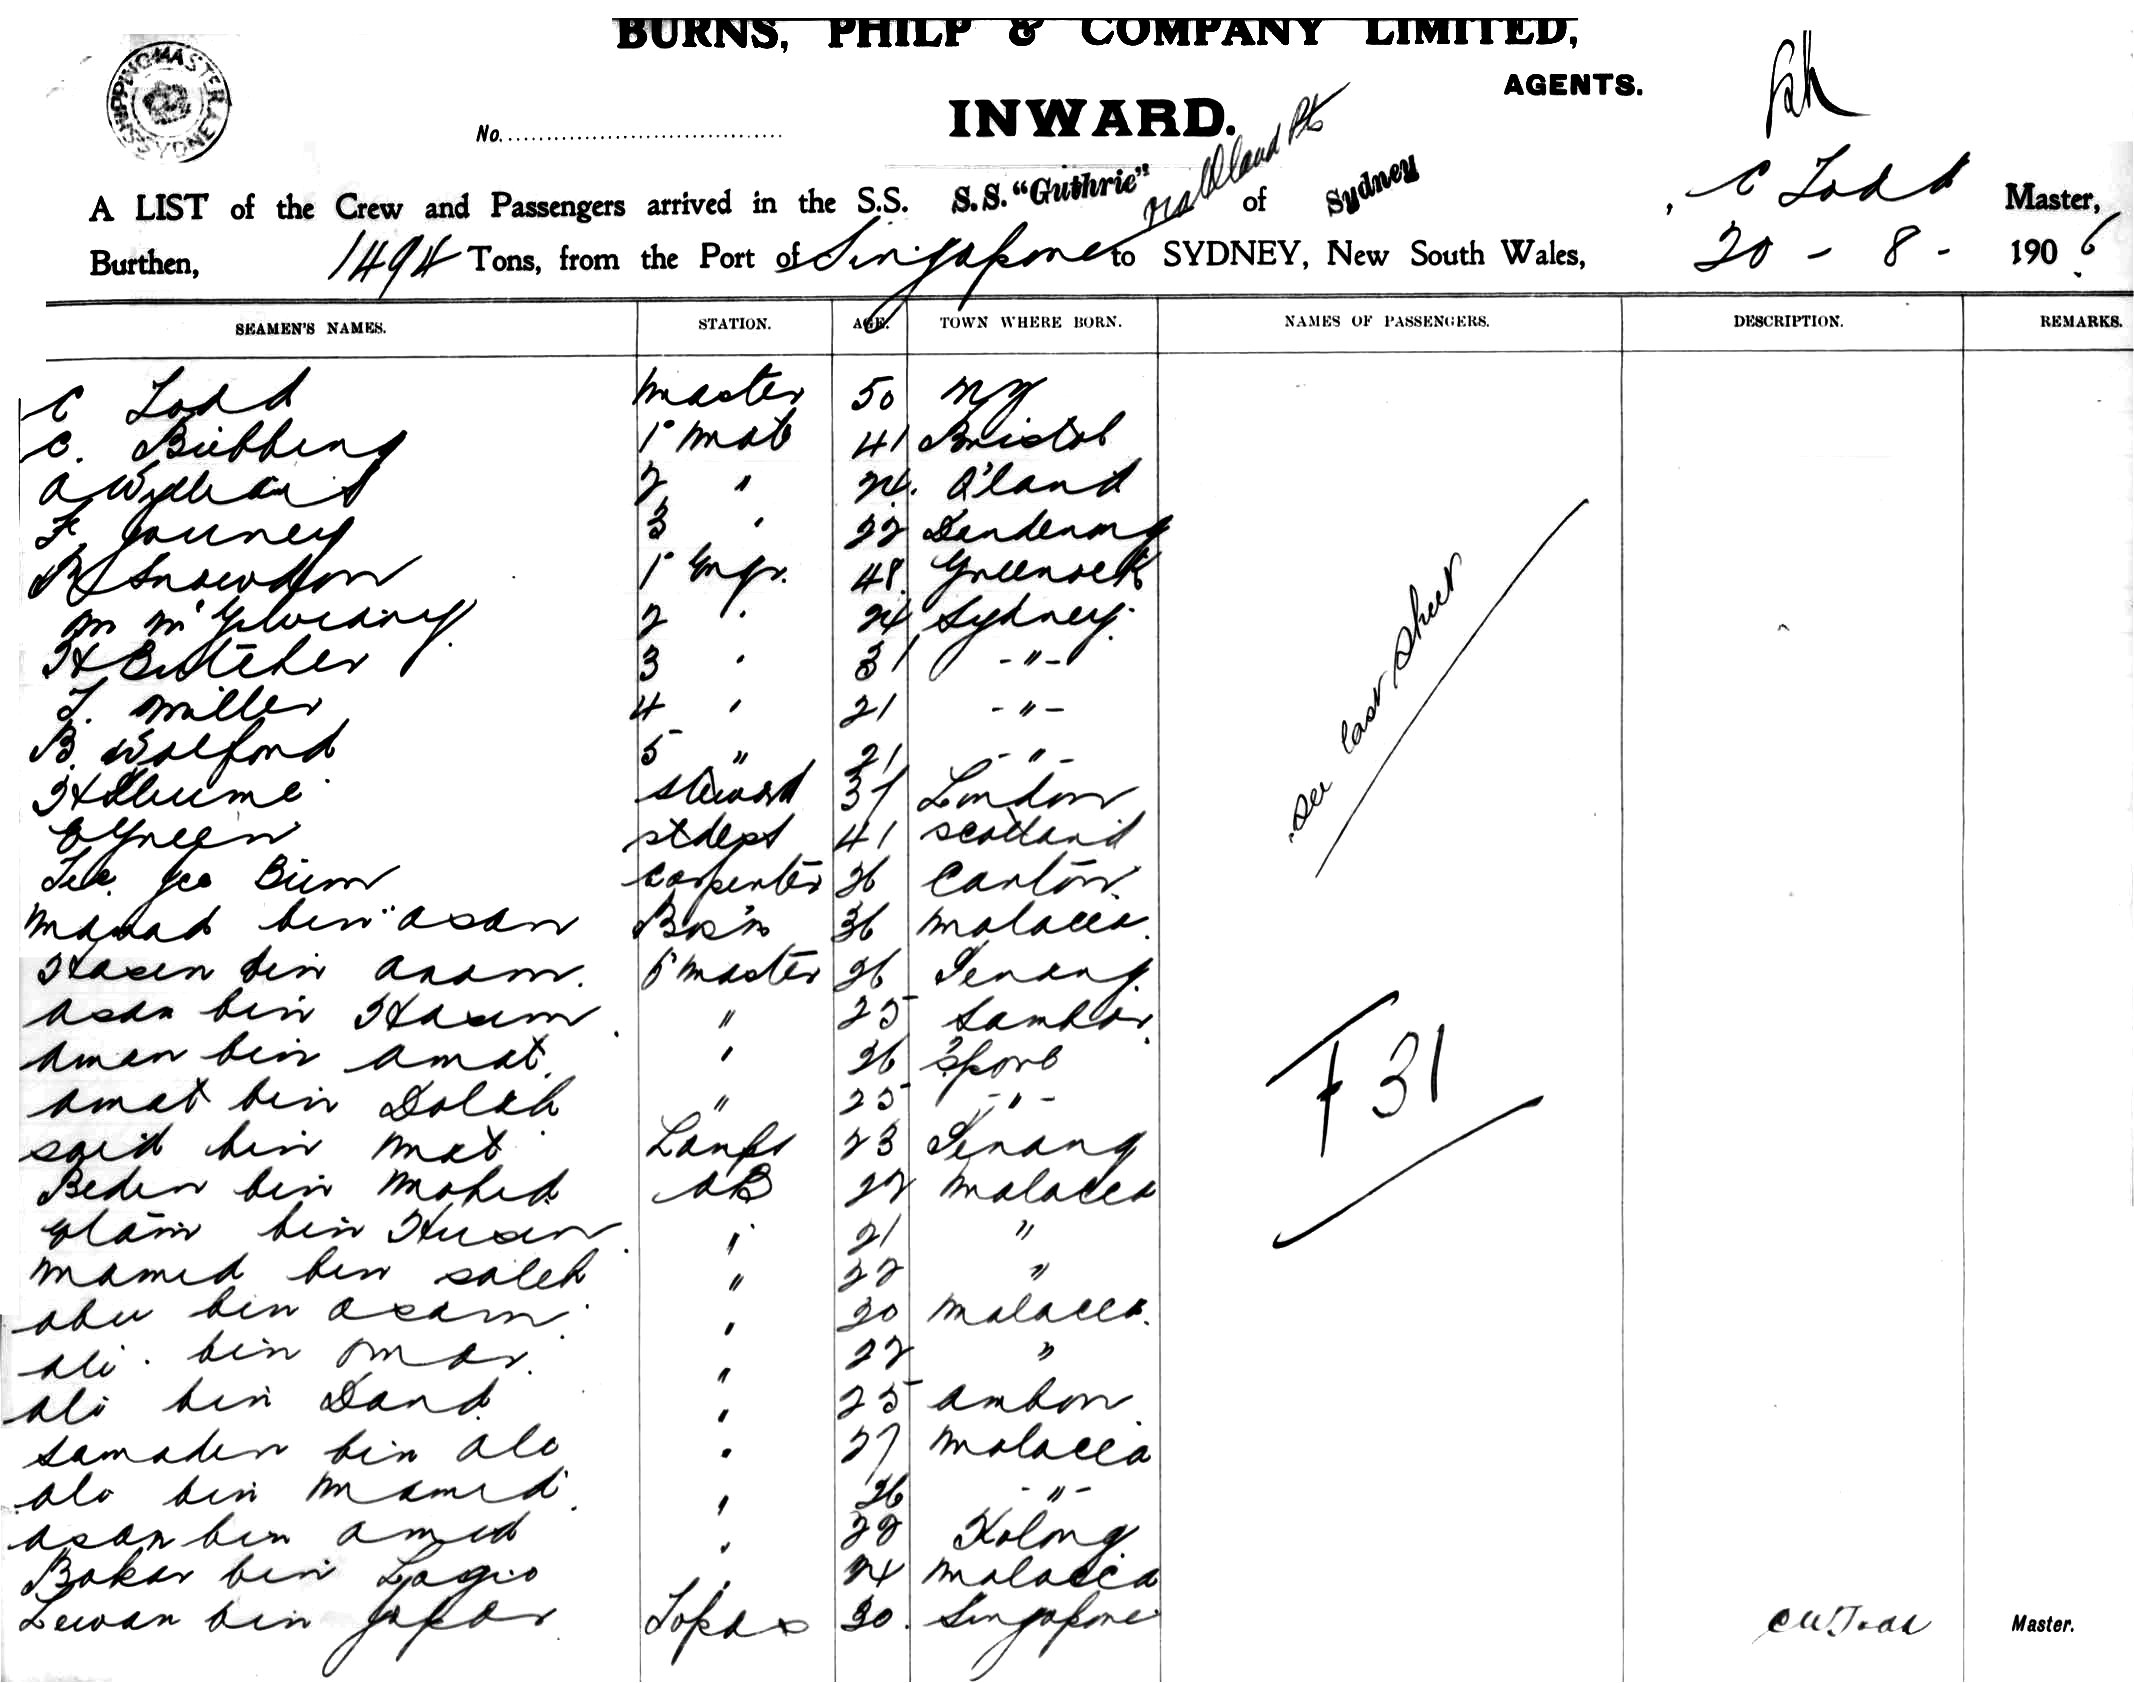 BURNS, PHILP & COMPANY LIMITED,
AGENTS.
SHIPPING MASTER SYDNEY
No.
INWARD.
A LIST of the Crew and Passengers arrived in the S.S. S.S. "Guthrie" of Sydney, C Todd Master,
Burthen, 1494 Tons, from the Port of Singapore to SYDNEY, New South Wales, 20 - 8 - 1906
SEAMEN'S NAMES. STATION. AGE. TOWN WHERE BORN. NAMES OF PASSENGERS. DESCRIPTION. REMARKS.
C Todd Master 50 NY
C. Biebbing 1st Mate 41 Bristol
A 2 " 24. A'land
F. 3 " 22 Dandenong
R Snowdon 1st Engr. 48 Greenock
M 2 " 24 Sydney
H Butcher 3 " 31 -"-
T. Miller 4 " 21 -"-
B. Walford 5 " 21 -"-
H Hume Steward 37 London
E Green 41 Scotland
Bium Carpenter 36 Canton
Mamad bin Asan Bos'n 36 Malacca.
Hasen bin Anam. master 26 Penang
Asan bin Hasim " 25 Sambas
Aman bin Amat. " 26 S'pore
Amat bin Dolah " 25 -"-
Said bin Mat Lamps 23 Penang
Beden bin Mohid AB 22 Malacca
Elam bin Husin " 21 "
Mamed bin Saleh " 22 "
Abu bin Asam " 30 Malacca.
Ali bin Omar " 22 "
Ali bin Daud " 25 Ambon
Samaden bin Ale " 27 Malacca
Ale bin Mamed " 26 -"-
Asan bin Amed " 22 Kolong
Bakar bin " 24 Malacca
Lewan bin Japar Topas 30. Singapore
See last sheet
F 31
C W Todd Master.